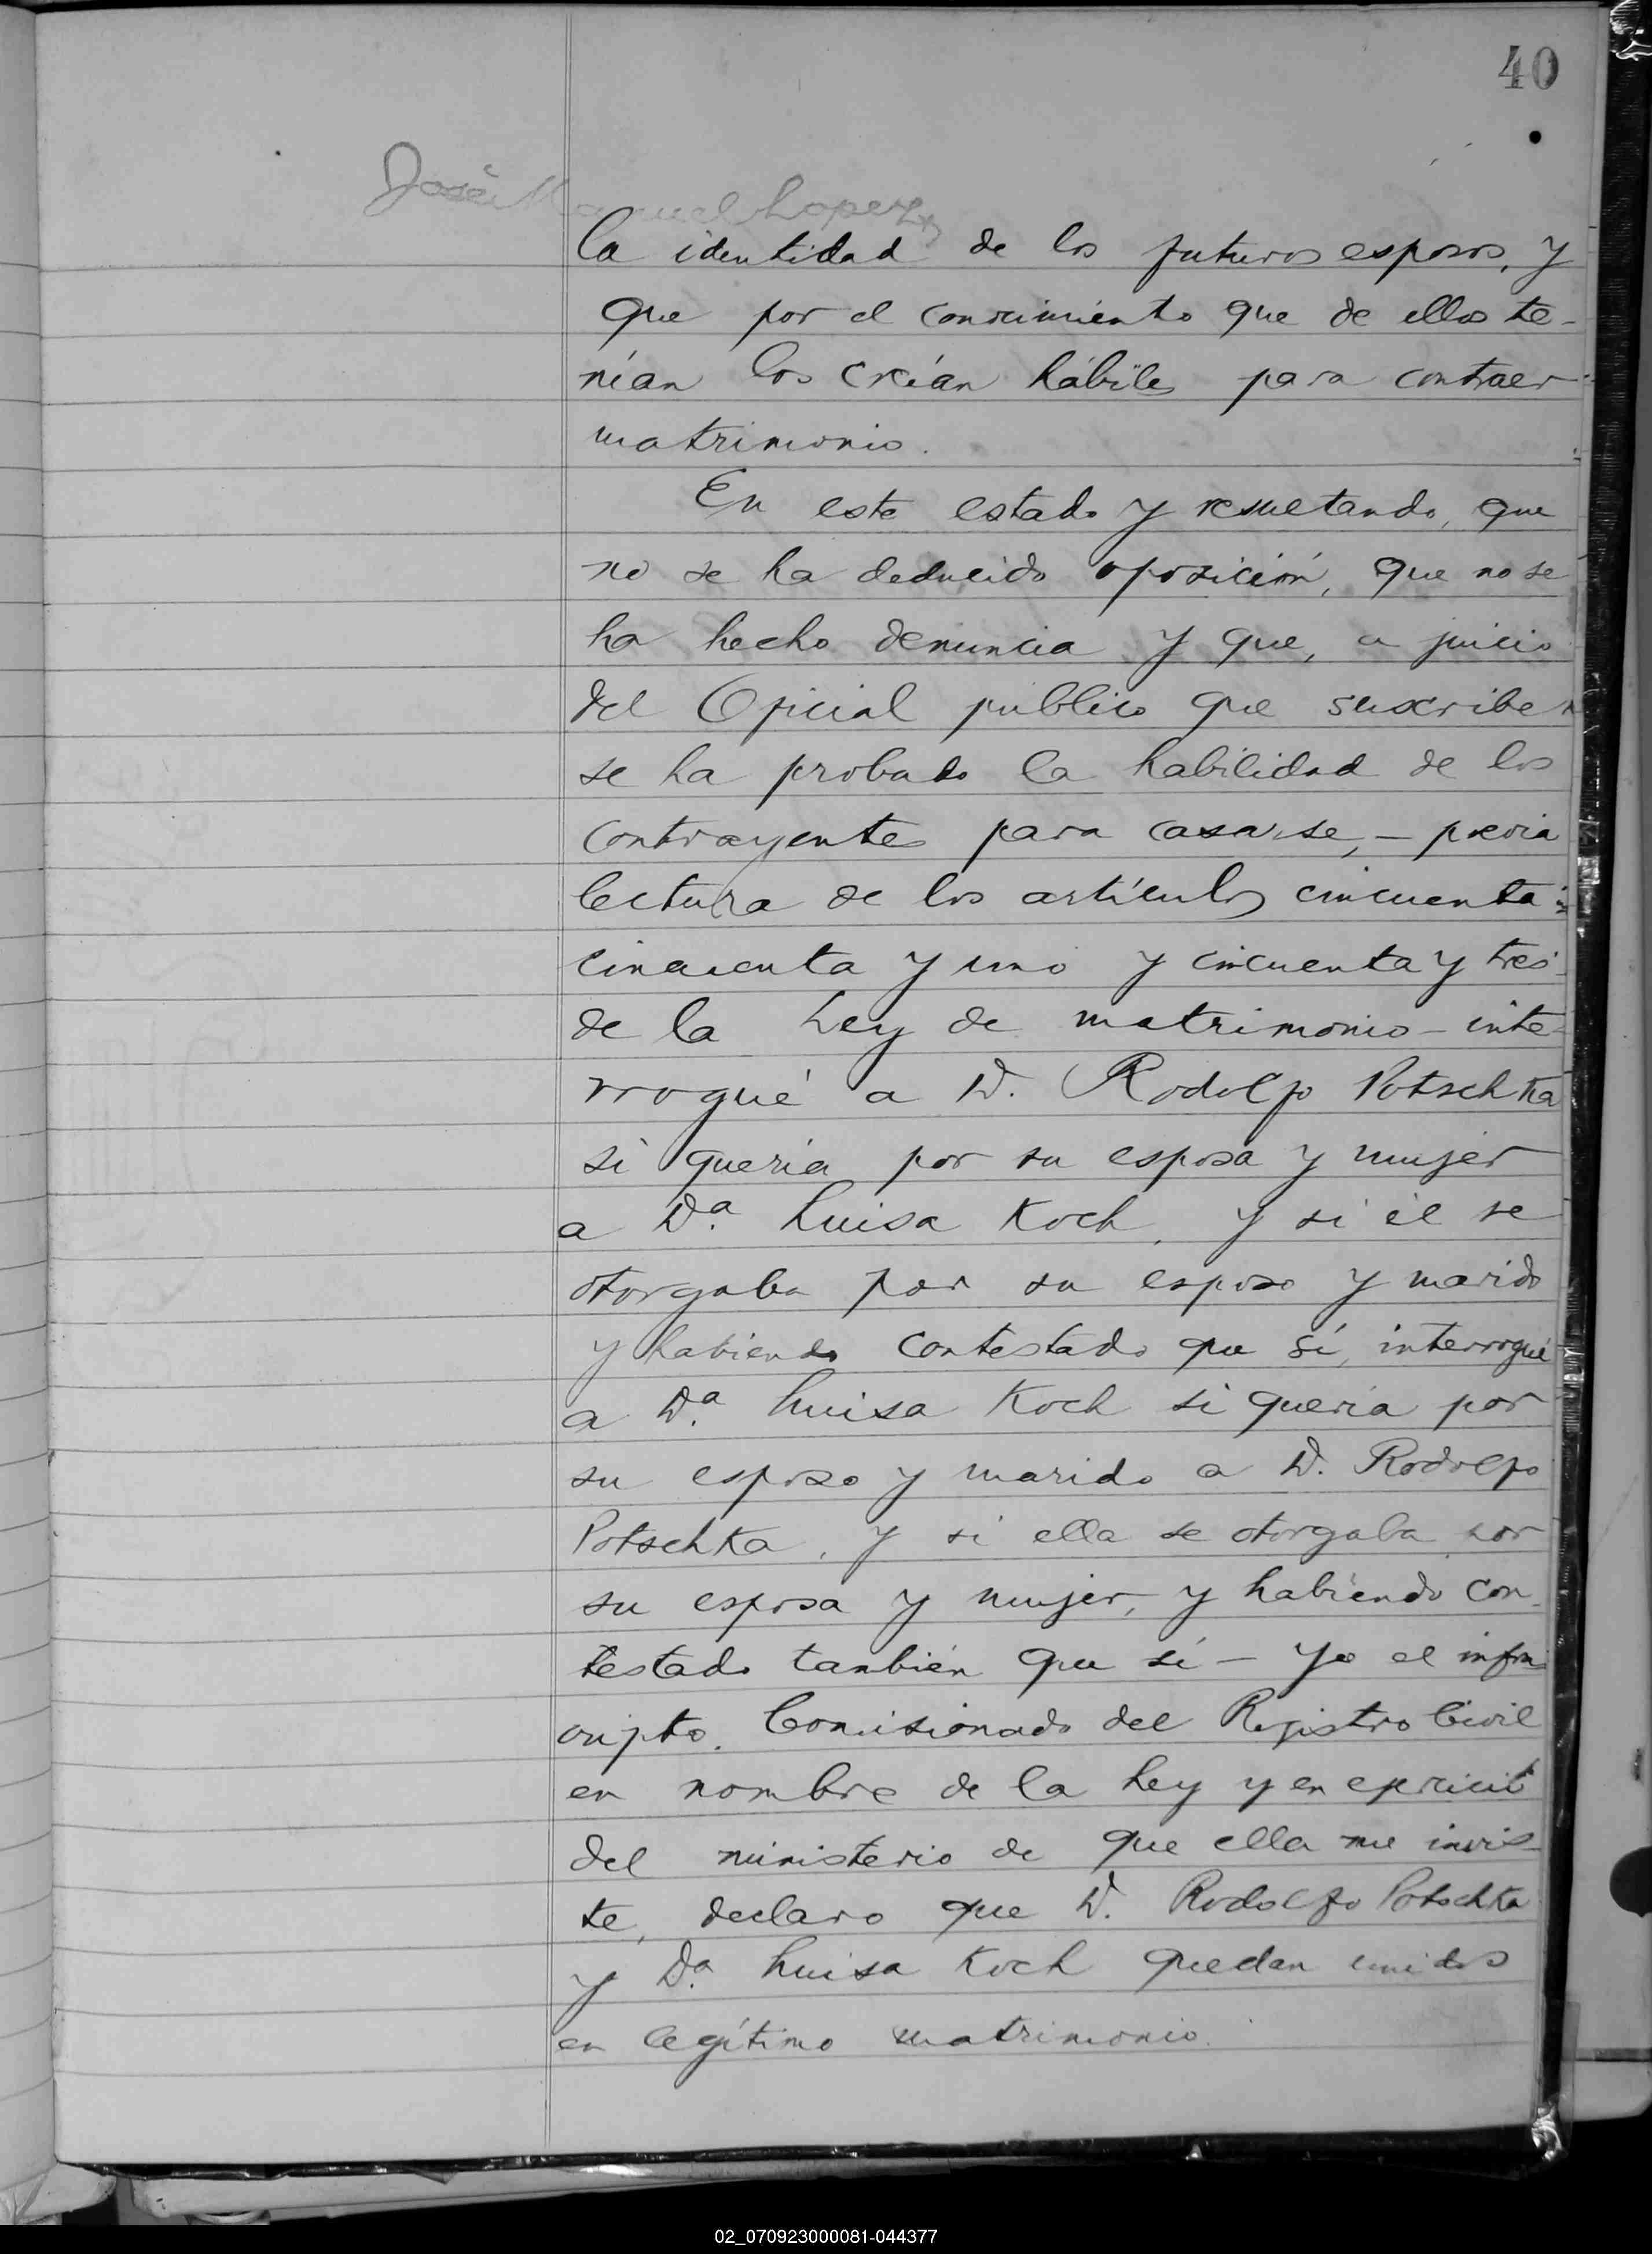 40
José Manuel Lopez
la identidad de los futuros esposos, y
que por el conocimiento que de ellos te-
nían los creían hábiles para contraer
matrimonio.
En este estado y resultando, que
no se ha deducido oposición, que no se
ha hecho denuncia y que, a juicio
del Oficial público que suscribe
se ha probado la habilidad de los
contrayentes para casarse, - previa
lectura de los artículos cincuenta
cincuenta y uno y cincuenta y tres
de la Ley de matrimonio - inte-
rrogué a D. Rodolfo Potschka
si quería por su esposa y mujer
a Da. Luisa Koch, y si él se
otorgaba por su esposo y marido
y habiendo contestado que sí, interrogué
a Da. Luisa Koch si quería por
su esposo y marido a D. Rodolfo
Potschka, y si ella se otorgaba por
su esposa y mujer, y habiendo con-
testado también que sí - Yo el infra
cripto. Comisionado del Registro Civil
en nombre de la Ley y en
del ministerio de que ella me invis-
te, declaro que D. Rodolfo Potschka
y Da. Luisa Koch quedan unidos
en legítimo matrimonio.
02_070923000081-044377